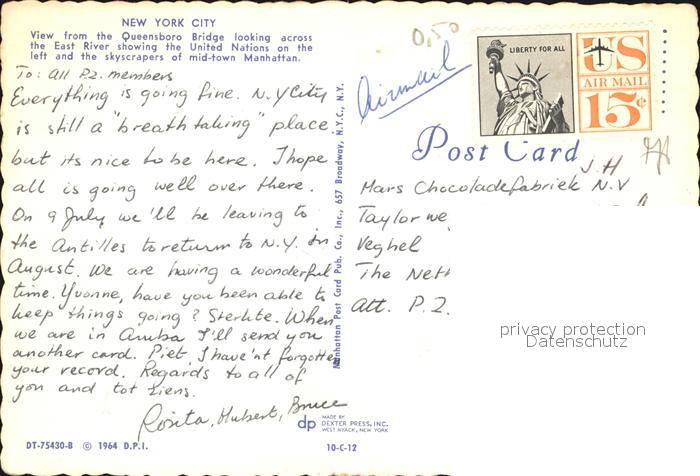 NEW YORK CITY
View from the Queensboro Bridge looking across
the East River showing the United Nations on the
left and the skyscrapers of mid-town Manhattan.
To: all P.2. members
Everything is going fine. N.Y City
is still a "breath taking" place
but its nice to be here. I hope
all is going well over there.
On 9 July we'll be leaving to
the Antilles to return to N.Y. in
August. We are having a wonderful
time. Yvonne, have you been able to
keep things going? Sterkte. When
we are in Aruba I'll send you
another card. Piet, I have'nt forgotten
your record. Regards to all of
you and tot ziens.
Rosita, Hubert, Bruce
DT-75430-B © 1964 D.P.I.
Manhattan Post Card Pub. Co., Inc., 657 Broadway, N.Y.C., N.Y.
dp MADE BY
DEXTER PRESS, INC.
WEST NYACK, NEW YORK
10-C-12
0,50
Airmail
LIBERTY FOR ALL
US
AIR MAIL
15¢
Post Card
J.H
Mars Chocoladefabriek N.V
Taylor we
Veghel
The Net
Att. P.2.
privacy protection
Datenschutz